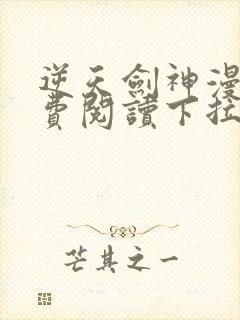 逆天劍神漫
費閱讀下拉
芒其之一